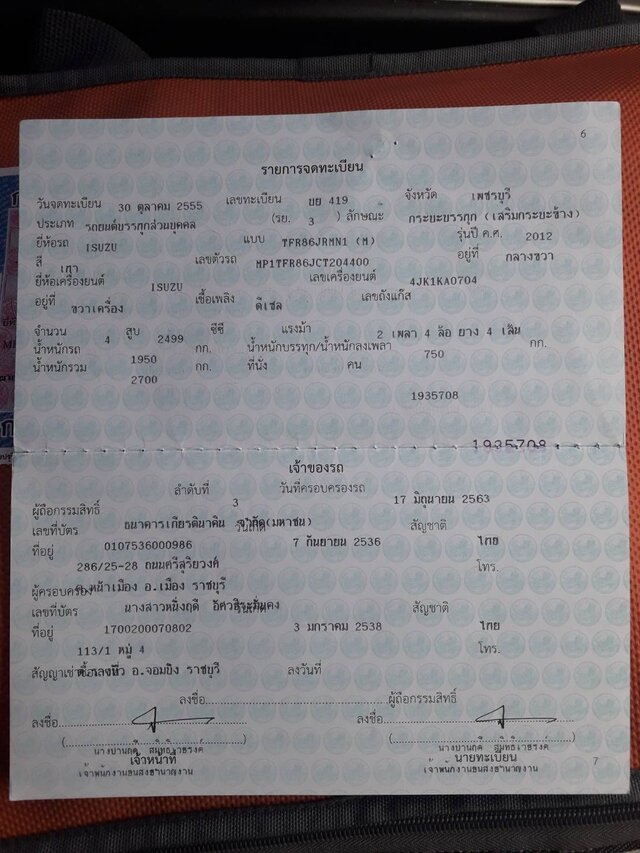 6
รายการจดทะเบียน
วันจดทะเบียน 30 ตุลาคม 2555 เลขทะเบียน ยย 419 จังหวัด เพชรบุรี
ประเภท รถยนต์บรรทุกส่วนบุคคล (รย. 3 ) ลักษณะ กระบะบรรทุก (เสริมกระบะข้าง)
ยี่ห้อรถ ISUZU แบบ TFR86JRMN1 (M) รุ่นปี ค.ศ. 2012
สี เทา เลขตัวรถ MP1TFR86JCT204400 อยู่ที่ กลางขวา
ยี่ห้อเครื่องยนต์ ISUZU เลขเครื่องยนต์ 4JK1KA0704
อยู่ที่ ขวาเครื่อง เชื้อเพลิง ดีเซล เลขถังแก๊ส
จำนวน 4 สูบ 2499 ซีซี แรงม้า 2 เพลา 4 ล้อ ยาง 4 เส้น
น้ำหนักรถ 1950 กก. น้ำหนักบรรทุก/น้ำหนักลงเพลา 750 กก.
น้ำหนักรวม 2700 กก. ที่นั่ง คน
1935708
1935708
เจ้าของรถ
ลำดับที่ 3 วันที่ครอบครองรถ 17 มิถุนายน 2563
ผู้ถือกรรมสิทธิ์ ธนาคารเกียรตินาคิน จำกัด(มหาชน)
เลขที่บัตร 0107536000986 วันเกิด 7 กันยายน 2536 สัญชาติ ไทย
ที่อยู่ 286/25-28 ถนนศรีสุริยวงศ์ โทร.
ต.หน้าเมือง อ.เมือง ราชบุรี
ผู้ครอบครอง นางสาวหนึ่งฤดี
เลขที่บัตร 1700200070802 วันเกิด 3 มกราคม 2538 สัญชาติ ไทย
ที่อยู่ 113/1 หมู่ 4 โทร.
อ.จอมบึง ราชบุรี
สัญญาเช่าซื้อเลขที่ ลงวันที่
ลงชื่อ ผู้ถือกรรมสิทธิ์
ลงชื่อ ลงชื่อ
เจ้าหน้าที่ นายทะเบียน
เจ้าพนักงานขนส่งชำนาญงาน เจ้าพนักงานขนส่งชำนาญงาน
7